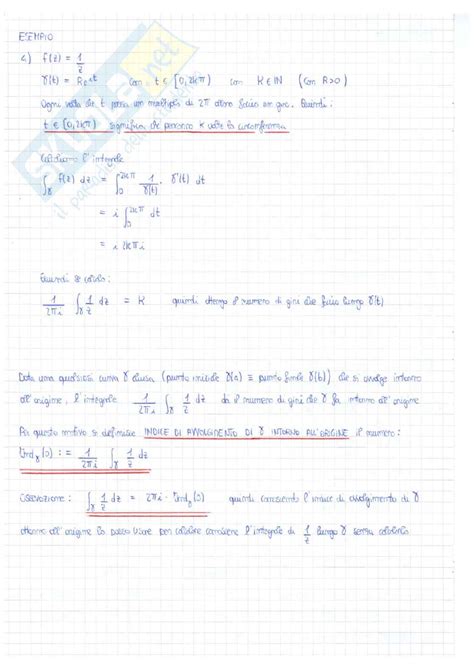 ESEMPIO
4) f(z) = 1/z
γ(t) = R e^{it} con t ∈ [0, 2kπ) con k ∈ ℕ (con R>0)
Ogni volta che t passa un multiplo di 2π allora faccio un giro. Quindi:
t ∈ [0, 2kπ) significa che percorro k volte la circonferenza
Calcoliamo l'integrale
∫_γ f(z) dz = ∫_0^{2kπ} 1/γ(t) · γ'(t) dt
= i ∫_0^{2kπ} dt
= i 2kπ i
Quindi se calcolo:
1/2πi ∫_γ 1/z dz = k quindi ottengo il numero di giri che faccio lungo γ(t)
Data una qualsiasi curva γ chiusa (punto iniziale γ(a) ≡ punto finale γ(b)) che si avvolge intorno
all'origine, l'integrale 1/2πi ∫_γ 1/z dz dà il numero di giri che γ fa intorno all'origine
Per questo motivo si definisce INDICE DI AVVOLGIMENTO DI γ INTORNO ALL'ORIGINE il numero:
Ind_γ(0) := 1/2πi ∫_γ 1/z dz
OSSERVAZIONE: ∫_γ 1/z dz = 2πi · Ind_γ(0) quindi conoscendo l'indice di avvolgimento di γ
attorno all'origine lo posso usare per calcolare l'integrale di 1/z lungo γ senza calcolarlo
skuola.net
il paradiso dello studente